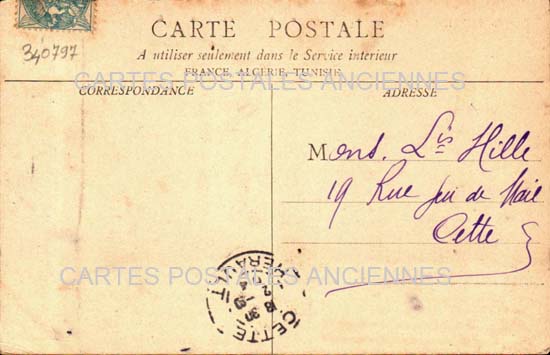 340797
CARTE POSTALE
A utiliser seulement dans le Service intérieur
FRANCE, ALGERIE, TUNISIE
CARTES POSTALES ANCIENNES
CORRESPONDANCE
ADRESSE
Mons. Lis Hille
19 Rue Jeu de Mail
Cette
CARTES POSTALES ANCIENNES
CETTE
HERAULT